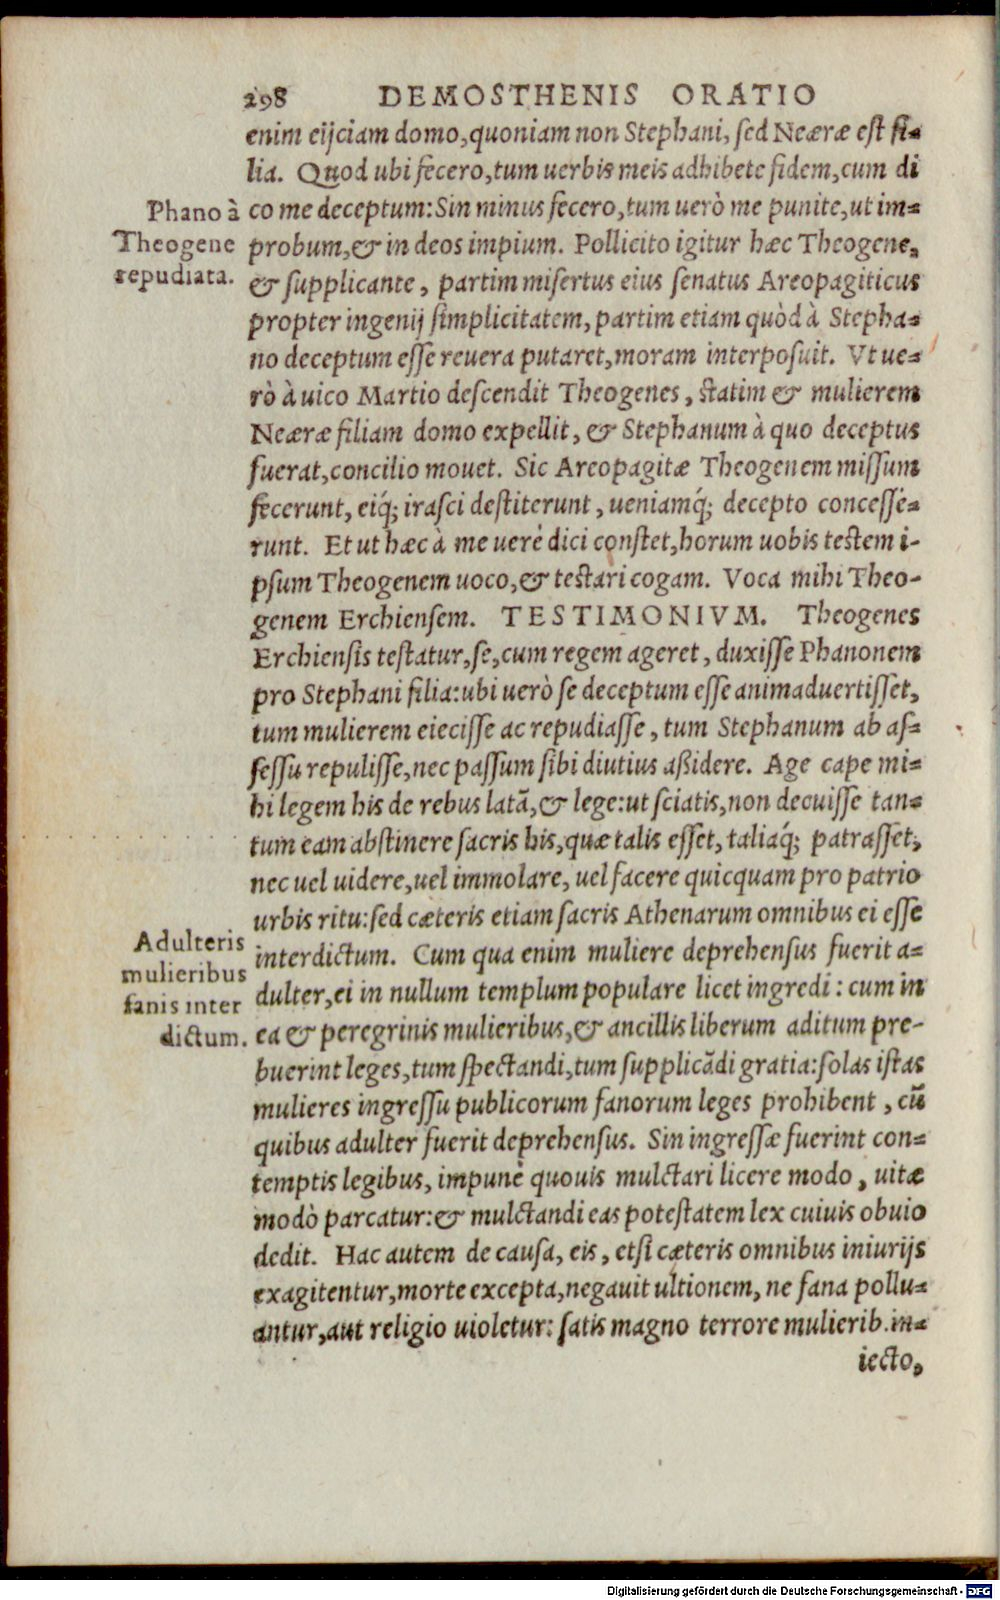 298 DEMOSTHENIS ORATIO
enim eijciam domo, quoniam non Stephani, sed Neæræ est fi-
lia. Quod ubi fecero, tum uerbis meis adhibete fidem, cum di
co me deceptum: Sin minus fecero, tum uerò me punite, ut im-
probum, & in deos impium. Pollicito igitur hæc Theogene,
& supplicante, partim misertus eius senatus Areopagiticus
propter ingenij simplicitatem, partim etiam quòd à Stepha-
no deceptum esse reuera putaret, moram interposuit. Vt ue-
rò à uico Martio descendit Theogenes, statim & mulierem
Neæræ filiam domo expellit, & Stephanum à quo deceptus
fuerat, concilio mouet. Sic Areopagitæ Theogenem missum
fecerunt, eiq́; irasci destiterunt, ueniamq́; decepto concesse-
runt. Et ut hæc à me uerè dici constet, horum uobis testem i-
psum Theogenem uoco, & testari cogam. Voca mihi Theo-
genem Erchiensem. TESTIMONIVM. Theogenes
Erchiensis testatur, se, cum regem ageret, duxisse Phanonem
pro Stephani filia: ubi uerò se deceptum esse animaduertisset,
tum mulierem eiecisse ac repudiasse, tum Stephanum ab as-
sessu repulisse, nec passum sibi diutius aßidere. Age cape mi-
hi legem his de rebus latã, & lege: ut sciatis, non decuisse tan-
tum eam abstinere sacris his, quæ talis esset, taliaq́; patrasset,
nec uel uidere, uel immolare, uel facere quicquam pro patrio
urbis ritu: sed cæteris etiam sacris Athenarum omnibus ei esse
interdictum. Cum qua enim muliere deprehensus fuerit a-
dulter, ei in nullum templum populare licet ingredi: cum in
ea & peregrinis mulieribus, & ancillis liberum aditum pre-
buerint leges, tum spectandi, tum supplicãdi gratia: solas istas
mulieres ingressu publicorum fanorum leges prohibent, cũ
quibus adulter fuerit deprehensus. Sin ingressæ fuerint con-
temptis legibus, impunè quouis mulctari licere modo, uitæ
modò parcatur: & mulctandi eas potestatem lex cuiuis obuio
dedit. Hac autem de causa, eis, etsi cæteris omnibus iniurijs
exagitentur, morte excepta, negauit ultionem, ne fana pollu-
antur, aut religio uioletur: satis magno terrore mulierib. in-
iecto,
Phano à
Theogene
repudiata.
Adulteris
mulieribus
fanis inter
dictum.
Digitalisierung gefördert durch die Deutsche Forschungsgemeinschaft - DFG